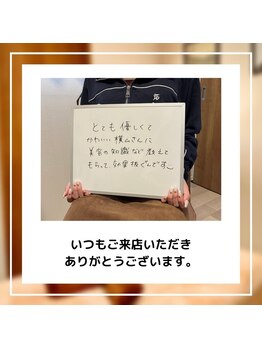 とても優しくて
かわいい横山さんに
美容の知識など教えて
もらって効果抜ぐんです
いつもご来店いただき
ありがとうございます。